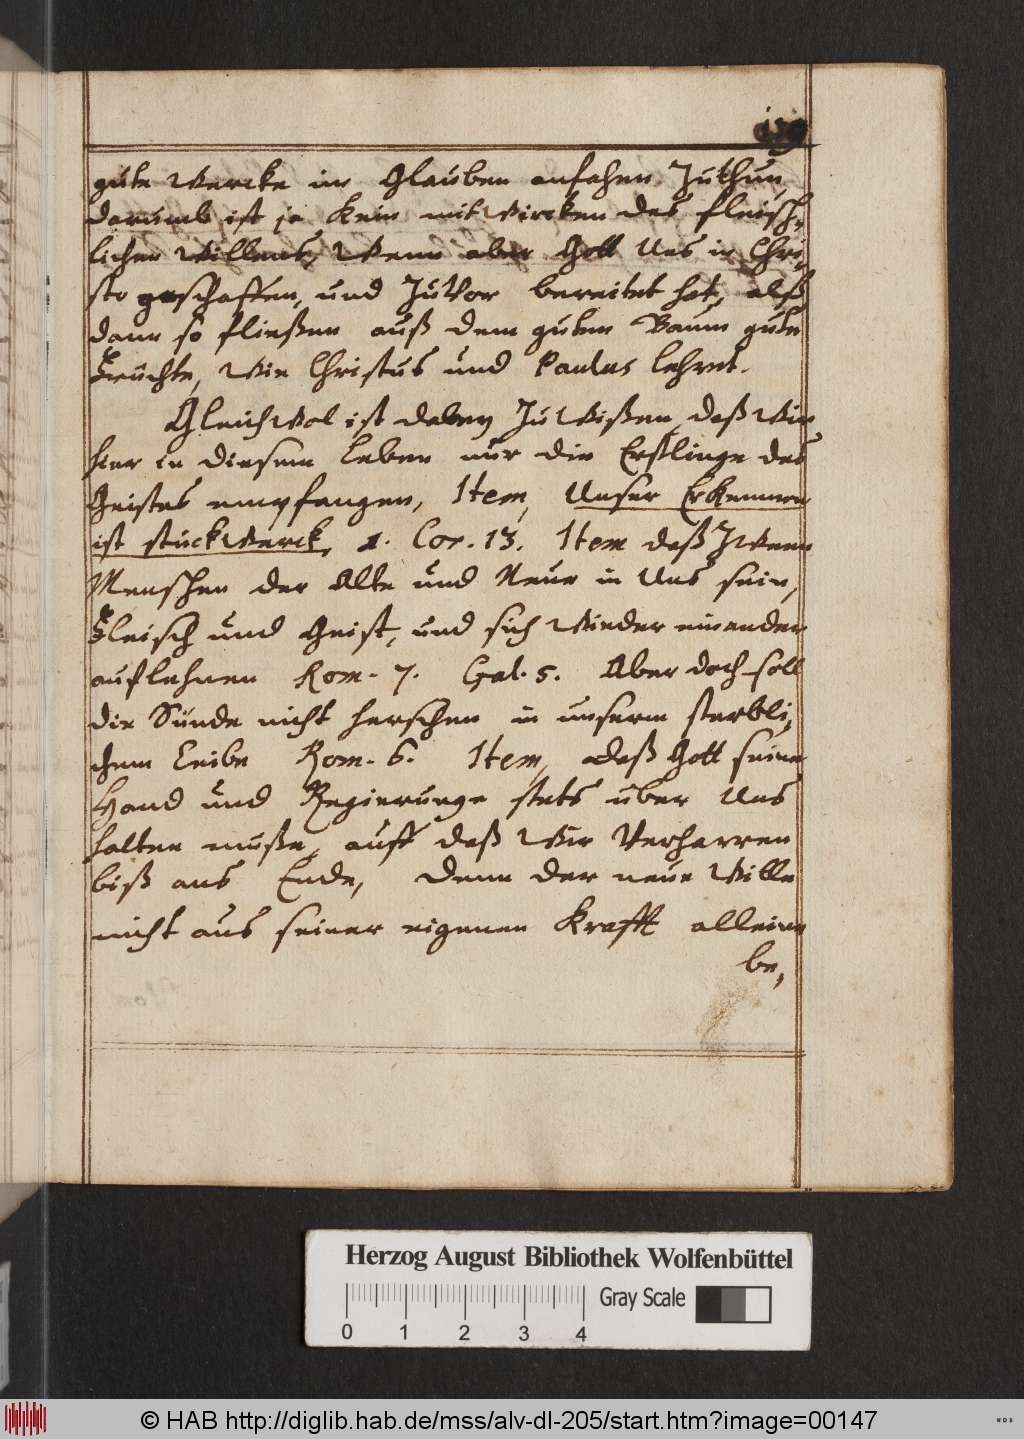 129
gute Wercke im Glauben anfahen Zuthun,
darumb ist ja Kein mitWircken des fleisch,
lichen Willens, Wenn aber Gott Uns in Chri,
sto geschaffen, und Zuvor bereitet hat, alß
dann so fließen auß dem guten Baum gute
Früchte, Wie Christus und Paulus lehret.
GleichWol ist dabey ZuWißen, daß Wir
hier in diesem Leben nur die Erstlinge des
Geistes empfangen, Item, Unser Erkennen
ist stückWerck, 1. Cor. 13. Item daß ZWeen
Menschen der Alte und Neue in Uns sein,
Fleisch und Geist, und sich Wieder einander
auflehnen Rom. 7. Gal. 5. Aber doch soll
die Sünde nicht herschen in unserm sterbli,
chem Leibe Rom. 6. Item, daß Gott seine
Hand und Regierunge stets über Uns
halten muße, auff daß Wir Verharren
biß ans Ende, denn der neue Wille
nicht aus seiner eigenen Krafft alleine
be,
Herzog August Bibliothek Wolfenbüttel
Gray Scale
0 1 2 3 4
© HAB http://diglib.hab.de/mss/alv-dl-205/start.htm?image=00147